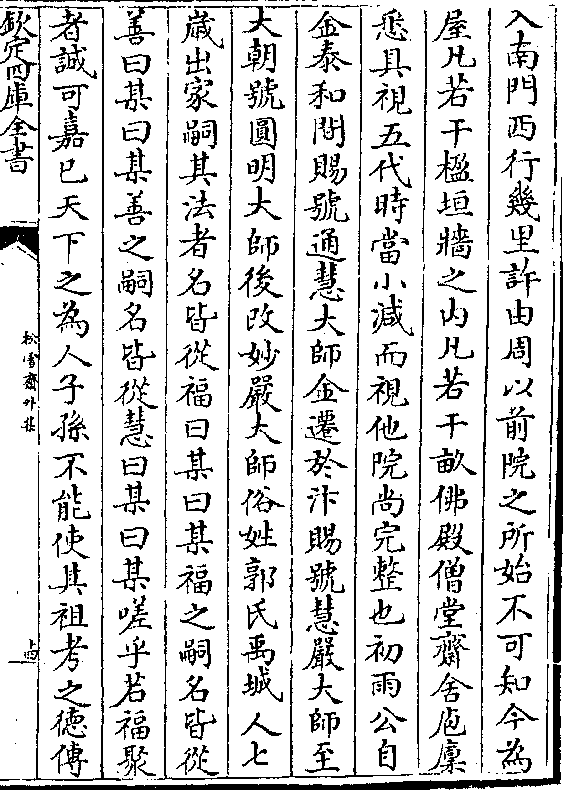 入南門西行幾里許由周以前院之所始不可知今為
屋凡若干楹垣牆之内凡若干畝佛殿僧堂齋舍庖廩
悉具視五代時當小減而視他院尚完整也初雨公自
金泰和間賜號通慧大師金遷於汴賜號慧嚴大師至
大朝號圓明大師後改妙嚴大師俗姓郭氏禹城人七
歲出家嗣其法者名皆從福曰某曰某福之嗣名皆從
善曰某曰某善之嗣名皆從慧曰某曰某嗟乎若福聚
者誠可嘉已天下之為人子孫不能使其祖考之德傳
欽定四庫全書
松雪齋外集
十四